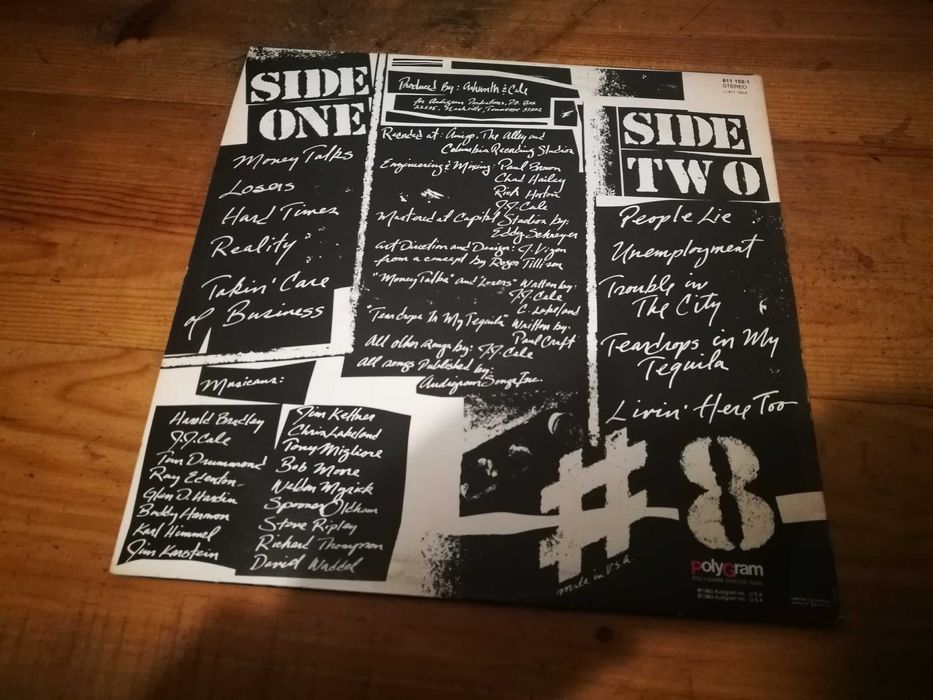 SIDE
ONE
Money Talks
Losers
Hard Times
Reality
Takin' Care
of Business
Produced By: Ashworth & Cale
for Audigram Productions, P.O. Box
Nashville, Tennessee
Recorded at: Amigo, The Alley and
Columbia Recording Studios
Engineering & Mixing: Paul Brown
Chad Hailey
Rick Horton
J.J. Cale
Mastered at Capitol Studios by:
Eddy Schreyer
Art Direction and Design: J. Vigon
from a concept by Roger Tillison
"Money Talks" and "Losers" Written by:
J.J. Cale
C. Lakeland
"Teardrops In My Tequila" Written by:
Paul Craft
All other songs by: J.J. Cale
All songs Published by:
Audigram Songs Inc.
811 152-1
STEREO
SIDE
TWO
People Lie
Unemployment
Trouble in
The City
Teardrops in My
Tequila
Livin' Here Too
Musicians:
Harold Bradley
J.J. Cale
Tom Drummond
Ray Edenton
Glen D. Hardin
Buddy Harmon
Karl Himmel
Jim Karstein
Jim Keltner
Chris Lakeland
Tony Migliore
Bob Moore
Weldon Myrick
Spooner Oldham
Steve Ripley
Richard Thompson
David Waddel
#8
made in U.S.A.
PolyGram
POLYGRAM DISCOS
℗1983 Audigram Inc., U.S.A.
©1983 Audigram Inc., U.S.A.